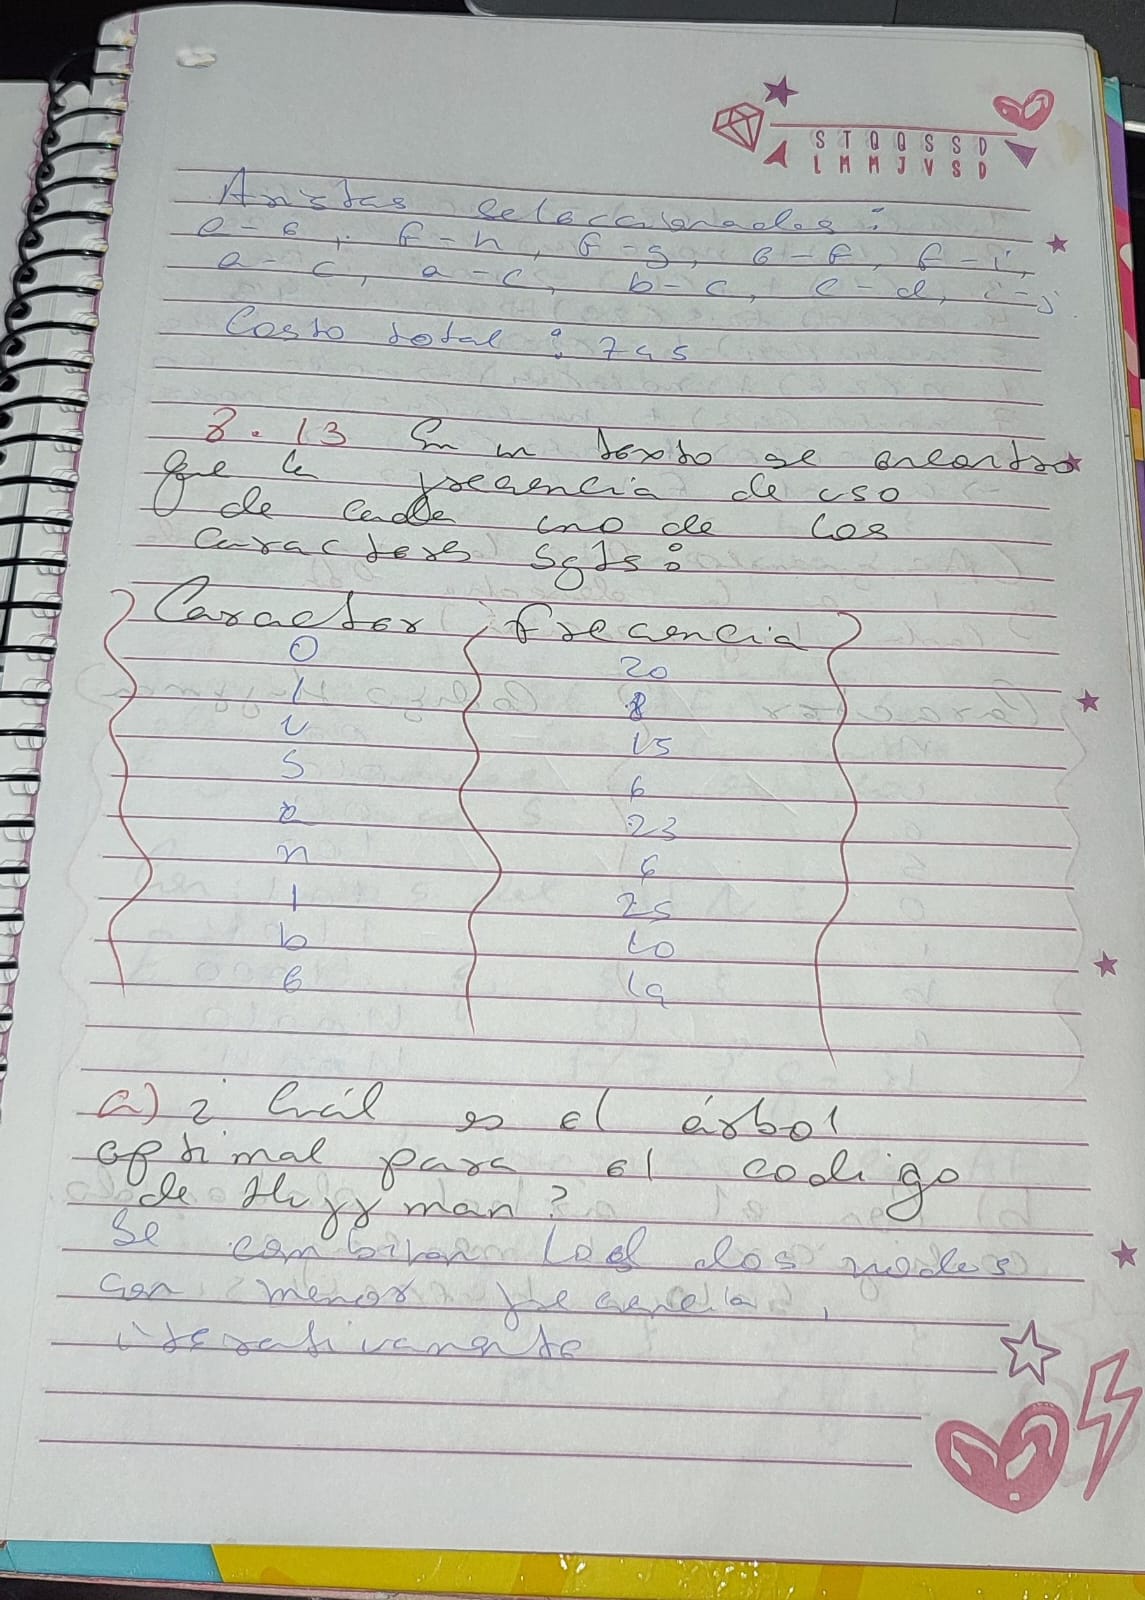 S T Q Q S S D
L M M J V S D
Aristas seleccionadas :
e-6, f-h, f-g, 6-f, f-i,
a-c, a-c, b-c, c-d, i-j
Costo total : 745
8.13 En un texto se encontro
que la frecuencia de uso
de cada uno de los
caracteres sgts :
Caracter frecuencia
O 20
1 8
u 15
S 6
e 23
n 6
l 25
b 10
6 19
a) ¿ Cuál es el árbol
optimal para el codigo
de Huffman ?
Se combinan los dos nodos
con menor frecuencia ,
iterativamente